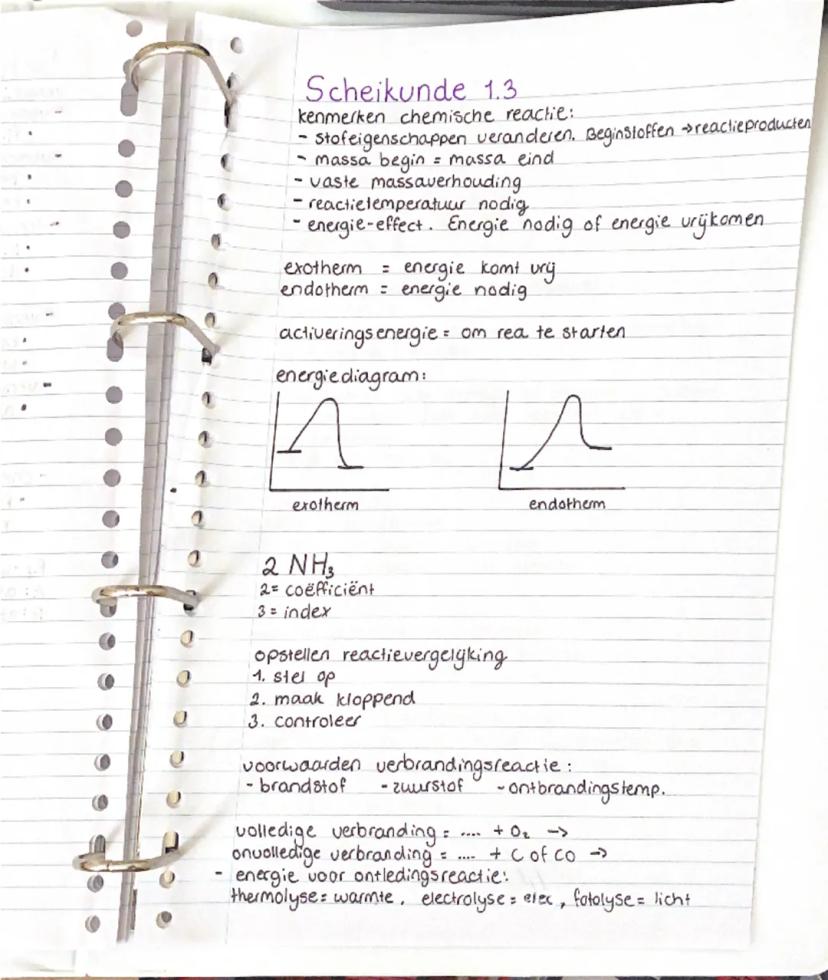 Scheikunde 1.3
kenmerken chemische reactie:
- stofeigenschappen veranderen. Beginstoffen → reactieproducten
- massa begin = massa eind
- vaste massaverhouding
- reactietemperatuur nodig
- energie-effect. Energie nodig of energie vrijkomen
exotherm = energie komt vrij
endotherm = energie nodig
activeringsenergie = om rea te starten
energiediagram:
exotherm endotherm
2 NH₃
2 = coëfficiënt
3 = index
opstellen reactievergelijking
1. stel op
2. maak kloppend
3. controleer
voorwaarden verbrandingsreactie:
- brandstof - zuurstof - ontbrandingstemp.
volledige verbranding = .... + O₂ →
onvolledige verbranding = .... + C of CO →
- energie voor ontledingsreactie:
thermolyse = warmte, electrolyse = elec, fotolyse = licht